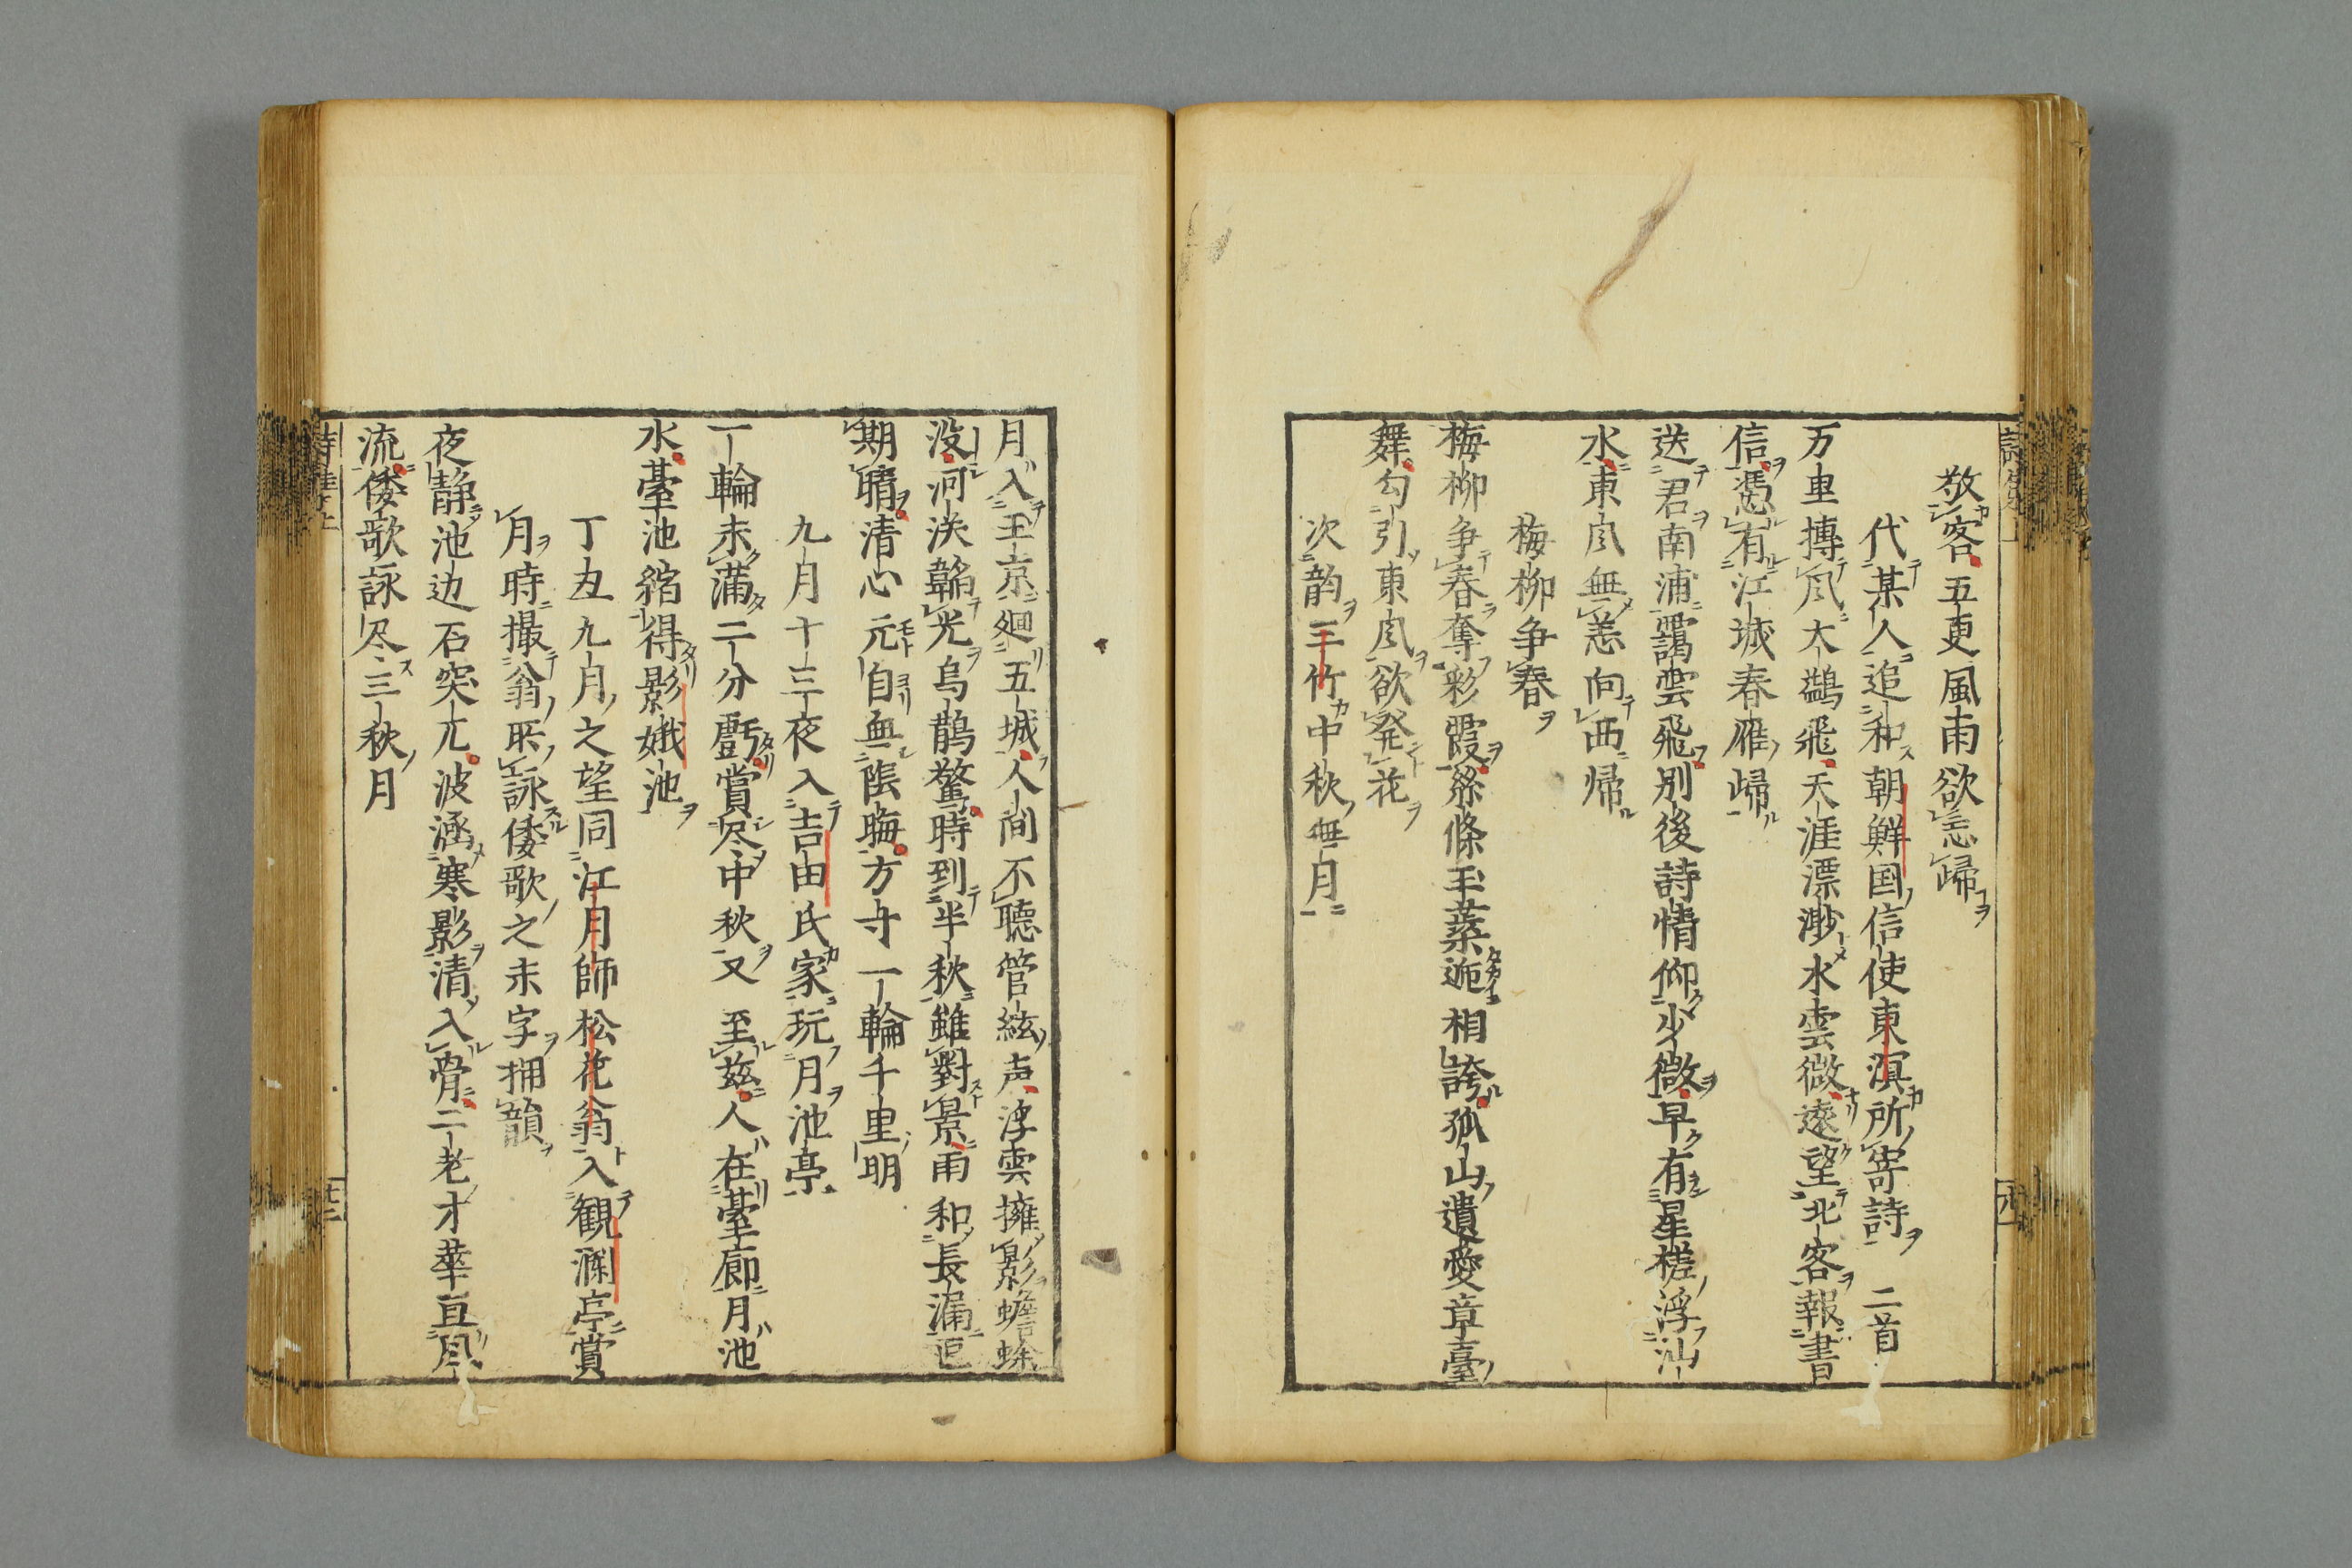 敬客五更風雨欲忘帰
代某人追和朝鮮国信使東溟所寄詩 二首
万里摶风大鵬飛天涯漂渺水雲微遠望北客報書
信憑有江城春雁帰
送君南浦靄雲飛別後詩情仰少微早有星槎浮汕
水東风無恙向西帰
梅柳争春
梅柳争春奪彩霞絲條玉蘂迤相誇孤山遺愛章臺
舞勾引東风欲発花
次韵三竹中秋無月
月入玉京廻五城人间不聴管絃声浮雲擁影蟾蜍
没河渓韜光烏鵲驚時到半秋雖對景雨和長漏
期晴清心元自無陰晦方寸一輪千里明
九月十三夜入吉由氏家玩月池亭
一輪未満二分虧賞尽中秋又至茲人在臺廊月池
水臺池縮得影娥池
丁丑九月之望同江月師松花翁入観瀾亭賞
月時撮翁所詠倭歌之未字押韻
夜静池边石突兀波涵寒影清入骨二老才華直风
流倭歌詠尽三秋月